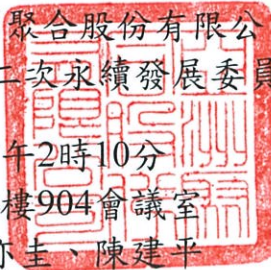 聚合股份有限公
二次永續發展委員
午2時10分
樓904會議室
圭、陳建平